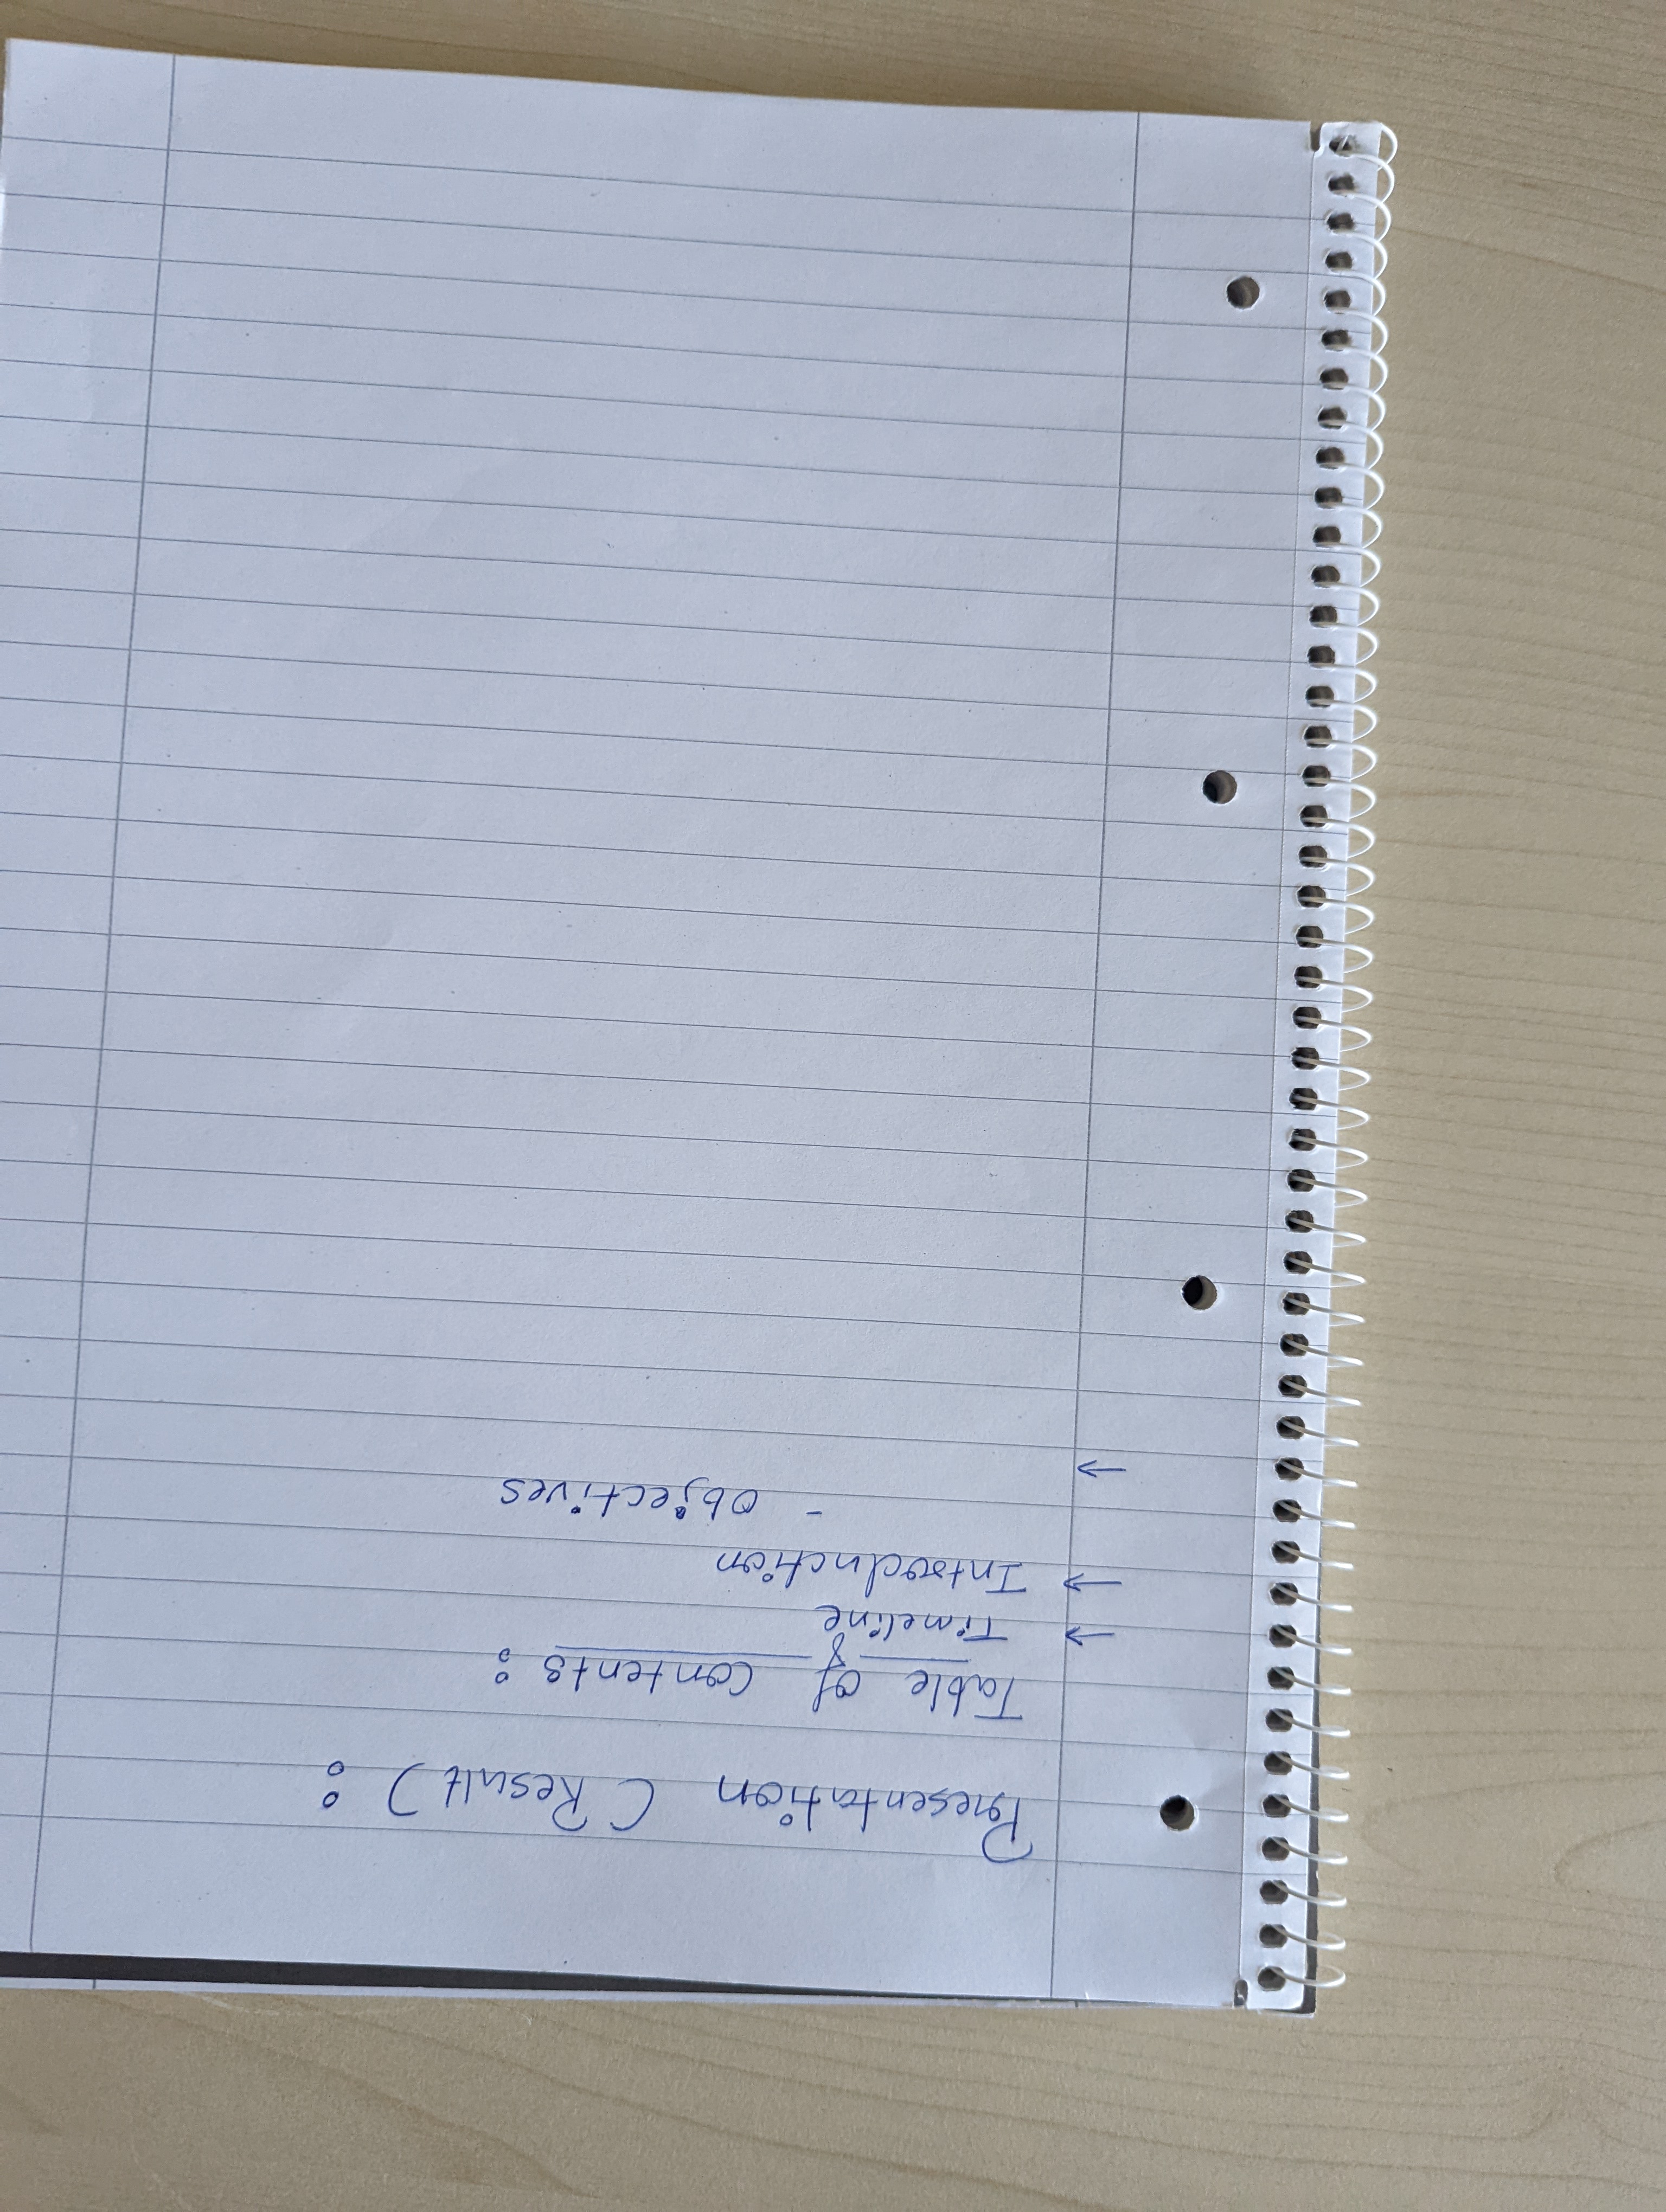 Presentation (Result) :
Table of Contents :
→ Timeline
→ Introduction
- Objectives
→